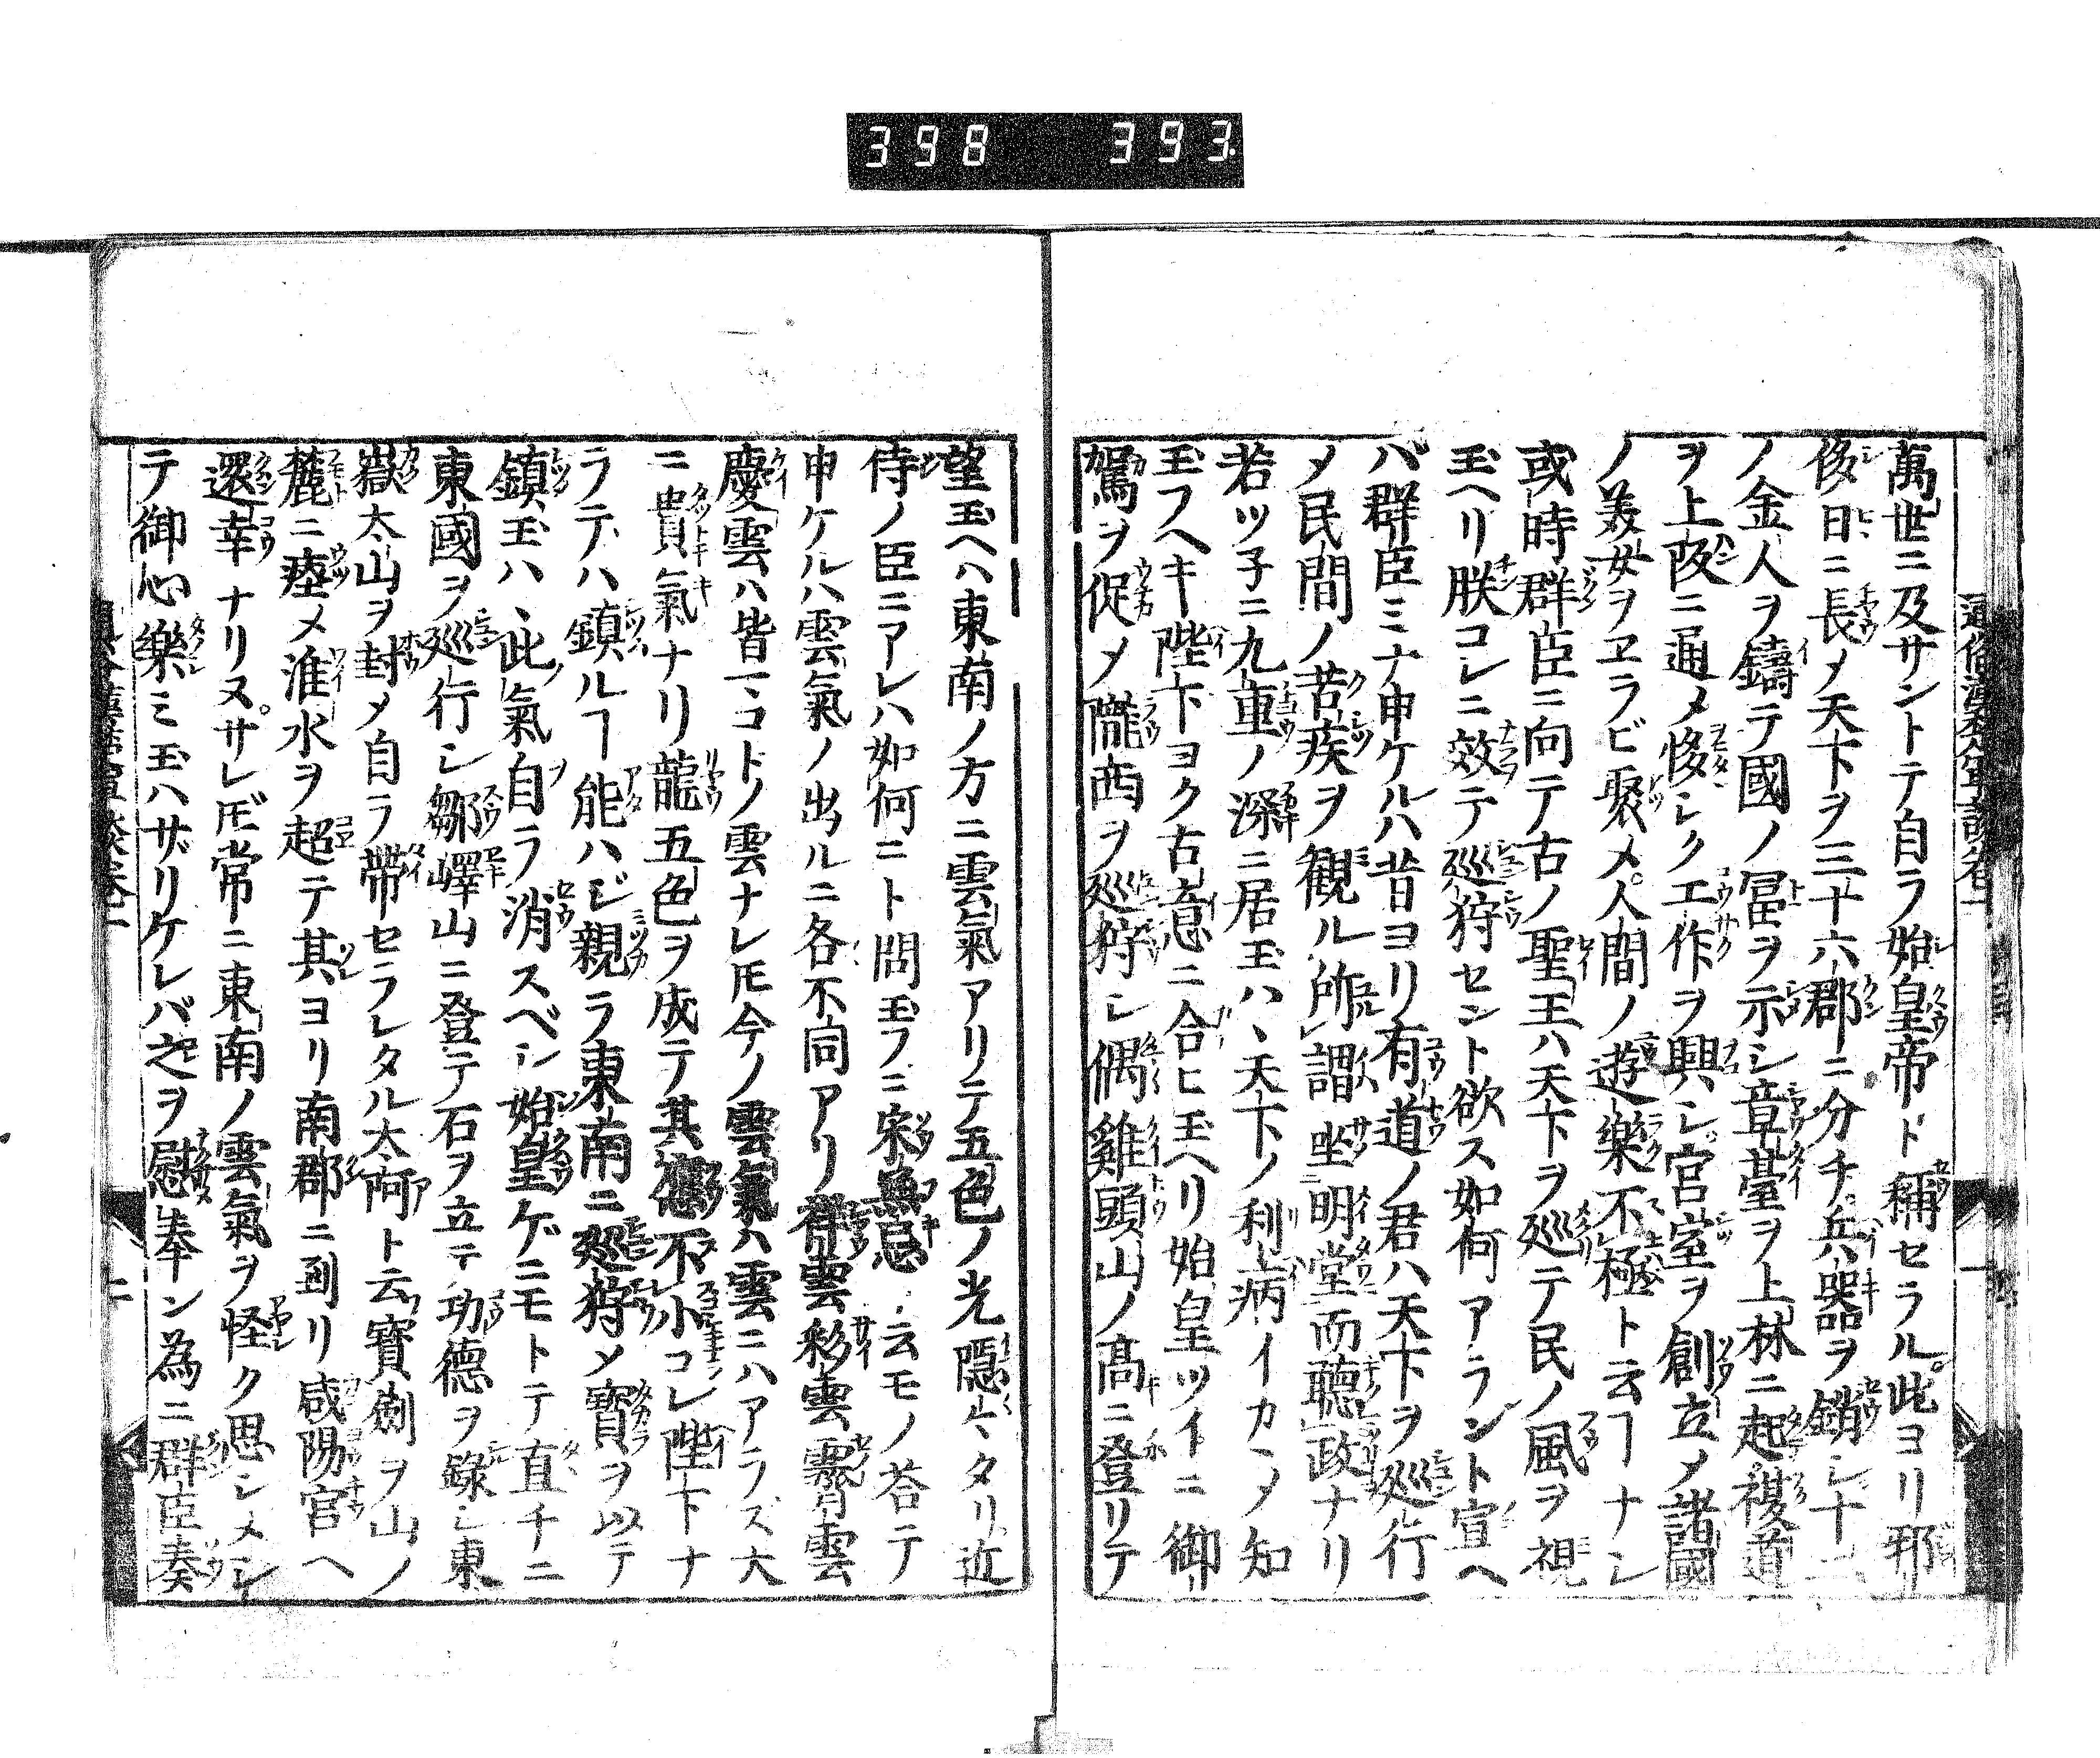 398 393
萬世ニ及サントテ自ラ始皇帝ト稱セラル。此ヨリ邪
侈日ニ長メ天下ヲ三十六郡ニ分チ。兵器ヲ銷シ十二
ノ金人ヲ鑄テ國ノ冨ヲ示シ章臺ヲ上林ニ起複道
ヲ上阪ニ通メ侈シク工作ヲ興シ。宮室ヲ創立メ諸國
ノ美女ヲヱラビ聚メ。人間ノ遊樂不極ト云ヿナシ
或時群臣ニ向テ古ノ聖王ハ天下ヲ廵テ民ノ風ヲ視
玉ヘリ朕コレニ效テ廵狩セント欲ス如何アラント宣ヘ
バ群臣ミナ申ケルハ昔ヨリ有道ノ君ハ天下ヲ廵行
メ民間ノ苦疾ヲ観ル所謂坐明堂而聽政ナリ
若ツ子ニ九重ノ深ニ居玉ハヽ天下ノ利病イカヽメ知
玉フヘキ陛下ヨク古意ニ合ヒ玉ヘリ始皇ツイニ御
駕ヲ促メ隴西ヲ廵狩シ偶雞頭山ノ髙ニ登リテ
望玉ヘハ東南ノ方ニ雲氣アリテ五色ノ光隠々タリ近
侍ノ臣ニアレハ如何ニト問玉フニ宋無忌ト云モノ荅テ
申ケルハ雲氣ノ出ルニ各不同アリ祥雲彩雲霱雲
慶雲ハ皆一コトノ雲ナレ𪜈今ノ雲氣ハ雲ニハアラズ大
ニ貴氣ナリ龍五色ヲ成テ其應不小コレ陛下ナ
ラテハ鎮ルヿ能ハジ親ラ東南ニ廵狩メ寳ヲ以テ
鎮玉ハヽ此氣自ラ消スベシ始皇ゲニモトテ直チニ
東國ヲ廵行シ鄒嶧山ニ登テ石ヲ立テ功德ヲ錄シ東
嶽太山ヲ封メ自ラ帶セラレタル太阿ト云寳劍ヲ山ノ
麓ニ瘞メ淮水ヲ超テ其ヨリ南郡ニ到リ咸陽宮ヘ
還幸ナリヌ。サレ𪜈常ニ東南ノ雲氣ヲ怪ク思シメシ
テ御心樂ミ玉ハザリケレバ之ヲ慰奉ン為ニ群臣奏